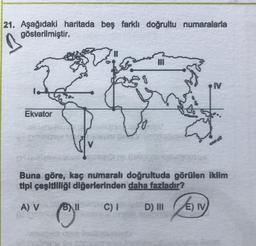 21. Aşağıdaki haritada beş farklı doğrultu numaralarla
gösterilmiştir.
II
III
I
IV
Ekvator
V
Buna göre, kaç numaralı doğrultuda görülen iklim
tipi çeşitliliği diğerlerinden daha fazladır?
A) V B) II C) I D) III E) IV